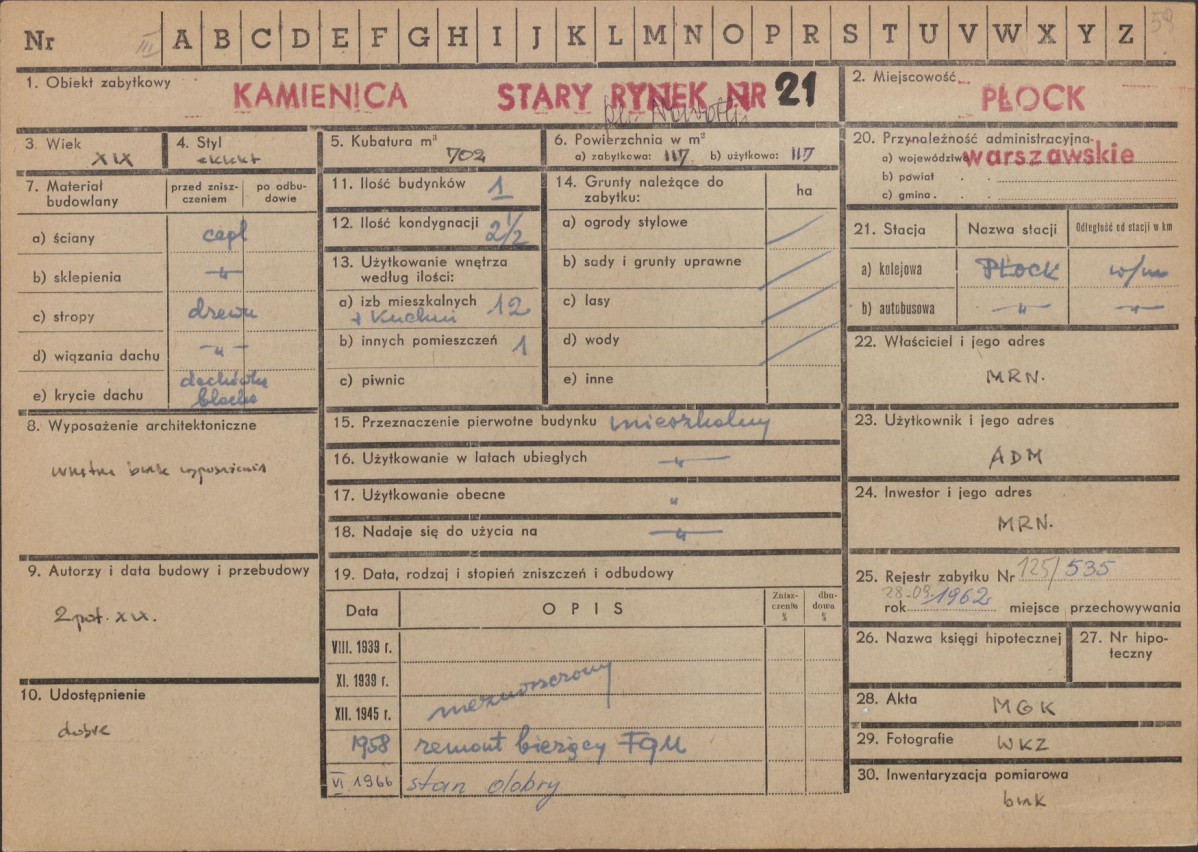 Nr III A B C D E F G H I J K L M N O P R S T U V W X Y Z 59
1. Obiekt zabytkowy
KAMIENICA STARY RYNEK NR 21
2. Miejscowość
PŁOCK
3. Wiek
XIX
4. Styl
eklekt
5. Kubatura m³
702
6. Powierzchnia w m²
a) zabytkowa: 117 b) użytkowa: 117
20. Przynależność administracyjna
a) województwo warszawskie
b) powiat
c) gmina
7. Materiał budowlany
przed zniszczeniem
po odbudowie
a) ściany cegł
b) sklepienia —"—
c) stropy drewn
d) wiązania dachu —"—
e) krycie dachu dachówka
blacha
11. Ilość budynków 1
12. Ilość kondygnacji 2 1/2
13. Użytkowanie wnętrza
według ilości:
a) izb mieszkalnych 12
+ Kuchni
b) innych pomieszczeń 1
c) piwnic
14. Grunty należące do
zabytku:
ha
a) ogrody stylowe
b) sady i grunty uprawne
c) lasy
d) wody
e) inne
21. Stacja
Nazwa stacji
Odległość od stacji w km
a) kolejowa PŁOCK w/m
b) autobusowa —"— —"—
22. Właściciel i jego adres
MRN.
23. Użytkownik i jego adres
ADM
24. Inwestor i jego adres
MRN.
8. Wyposażenie architektoniczne
wnętrze brak wyposażenia
15. Przeznaczenie pierwotne budynku mieszkalny
16. Użytkowanie w latach ubiegłych —"—
17. Użytkowanie obecne "
18. Nadaje się do użycia na —"—
9. Autorzy i data budowy i przebudowy
2 poł. XIX.
10. Udostępnienie
dobre
19. Data, rodzaj i stopień zniszczeń i odbudowy
Data
OPIS
Zniszczenia %
dbudowa %
VIII. 1939 r.
XI. 1939 r.
XII. 1945 r. niezniszczony
1958 remont bieżący FGM
VI 1966 stan dobry
25. Rejestr zabytku Nr 125/535
28.03. 1962
rok miejsce przechowywania
26. Nazwa księgi hipotecznej
27. Nr hipoteczny
28. Akta MGK
29. Fotografie WKZ
30. Inwentaryzacja pomiarowa
brak